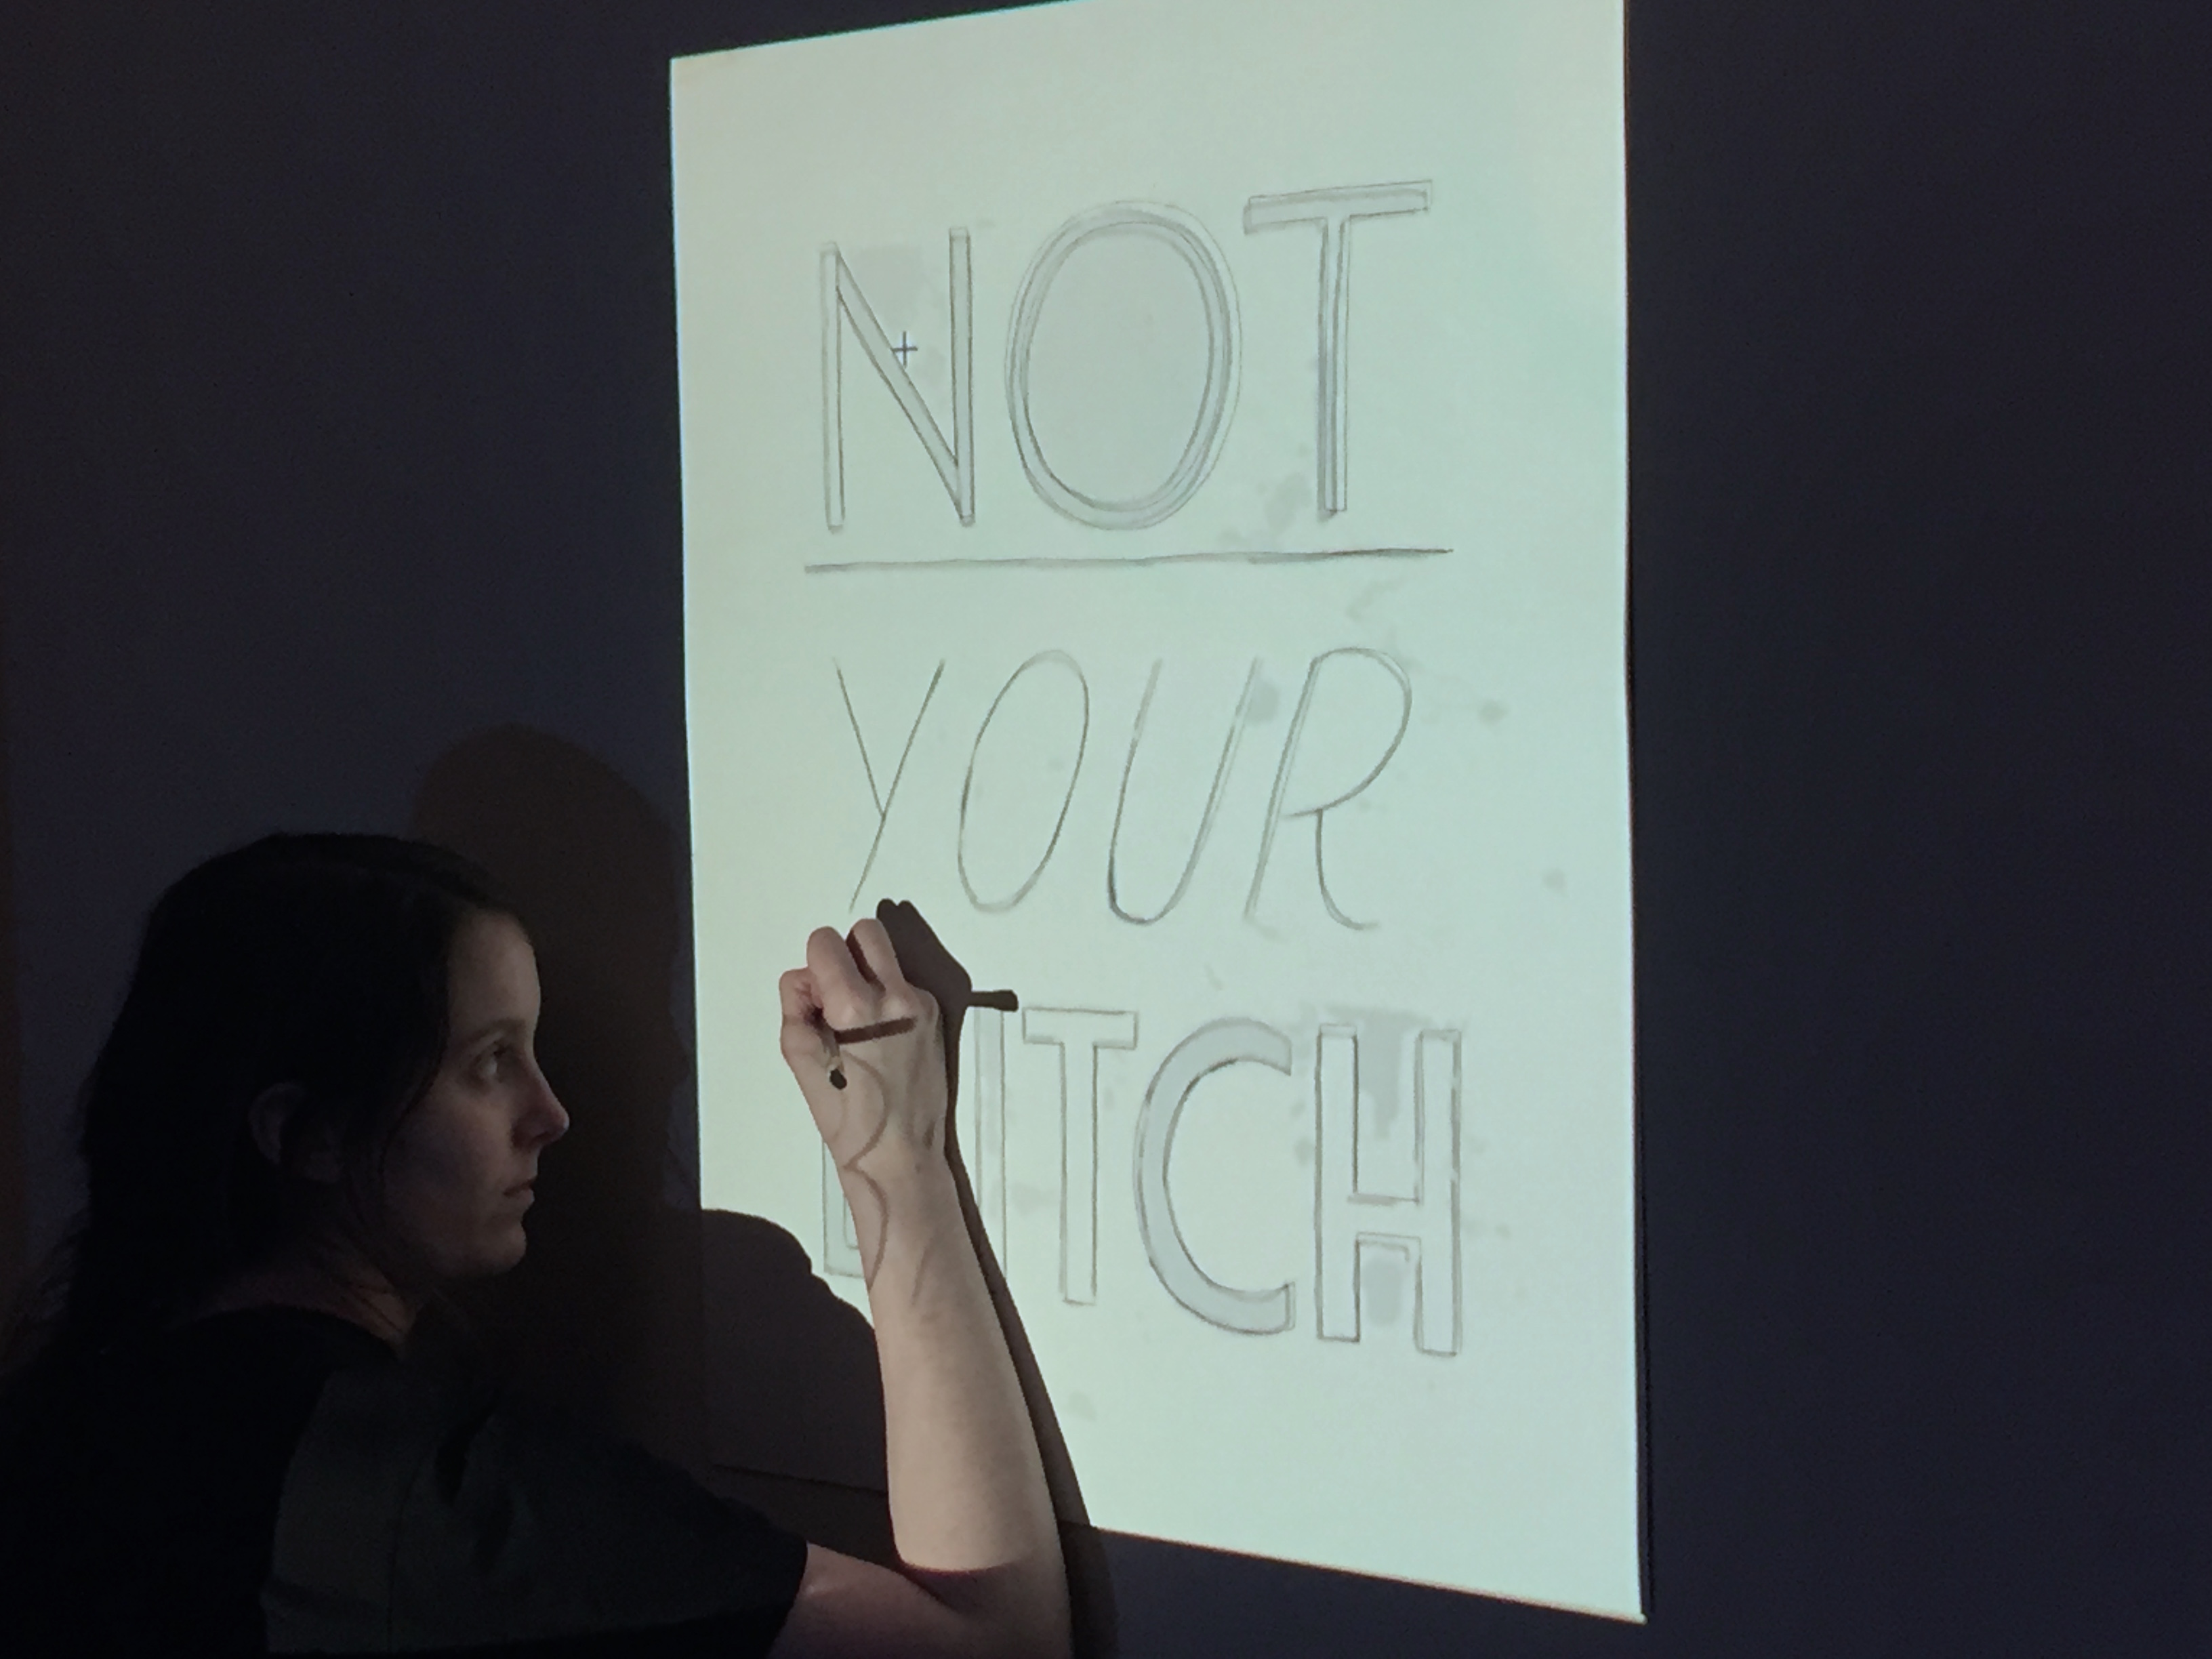 NOT
YOUR
BITCH